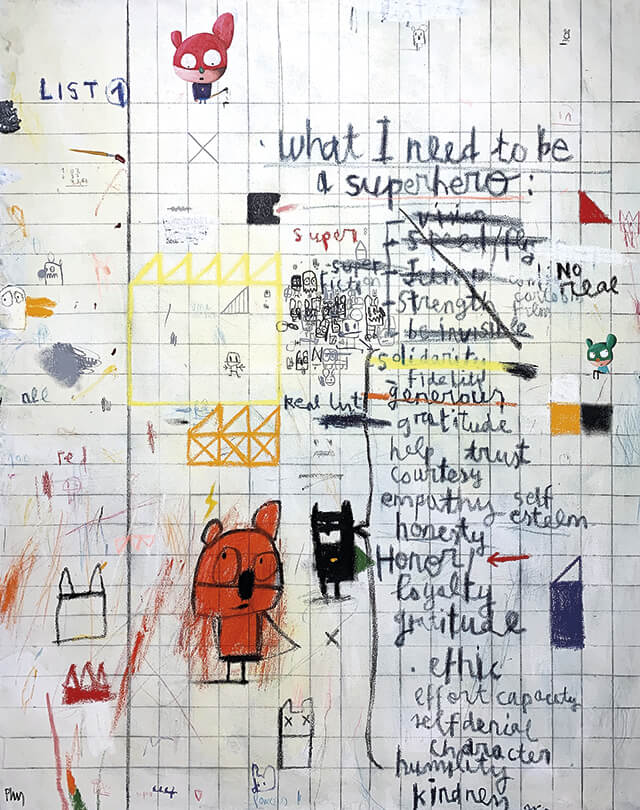 LIST 1
. What I need to be
a superhero:
super
vision
- Speed/fly
- super
fiction
- Strength
- be invisible
! NO
real
solidarity
- fidelity
generous
real list
- gratitude
help trust
courtesy
empathy self
esteem
honesty
Honor/
loyalty
gratitude
. ethic
effort capacity
self denial
character
humility
kindness
all
red